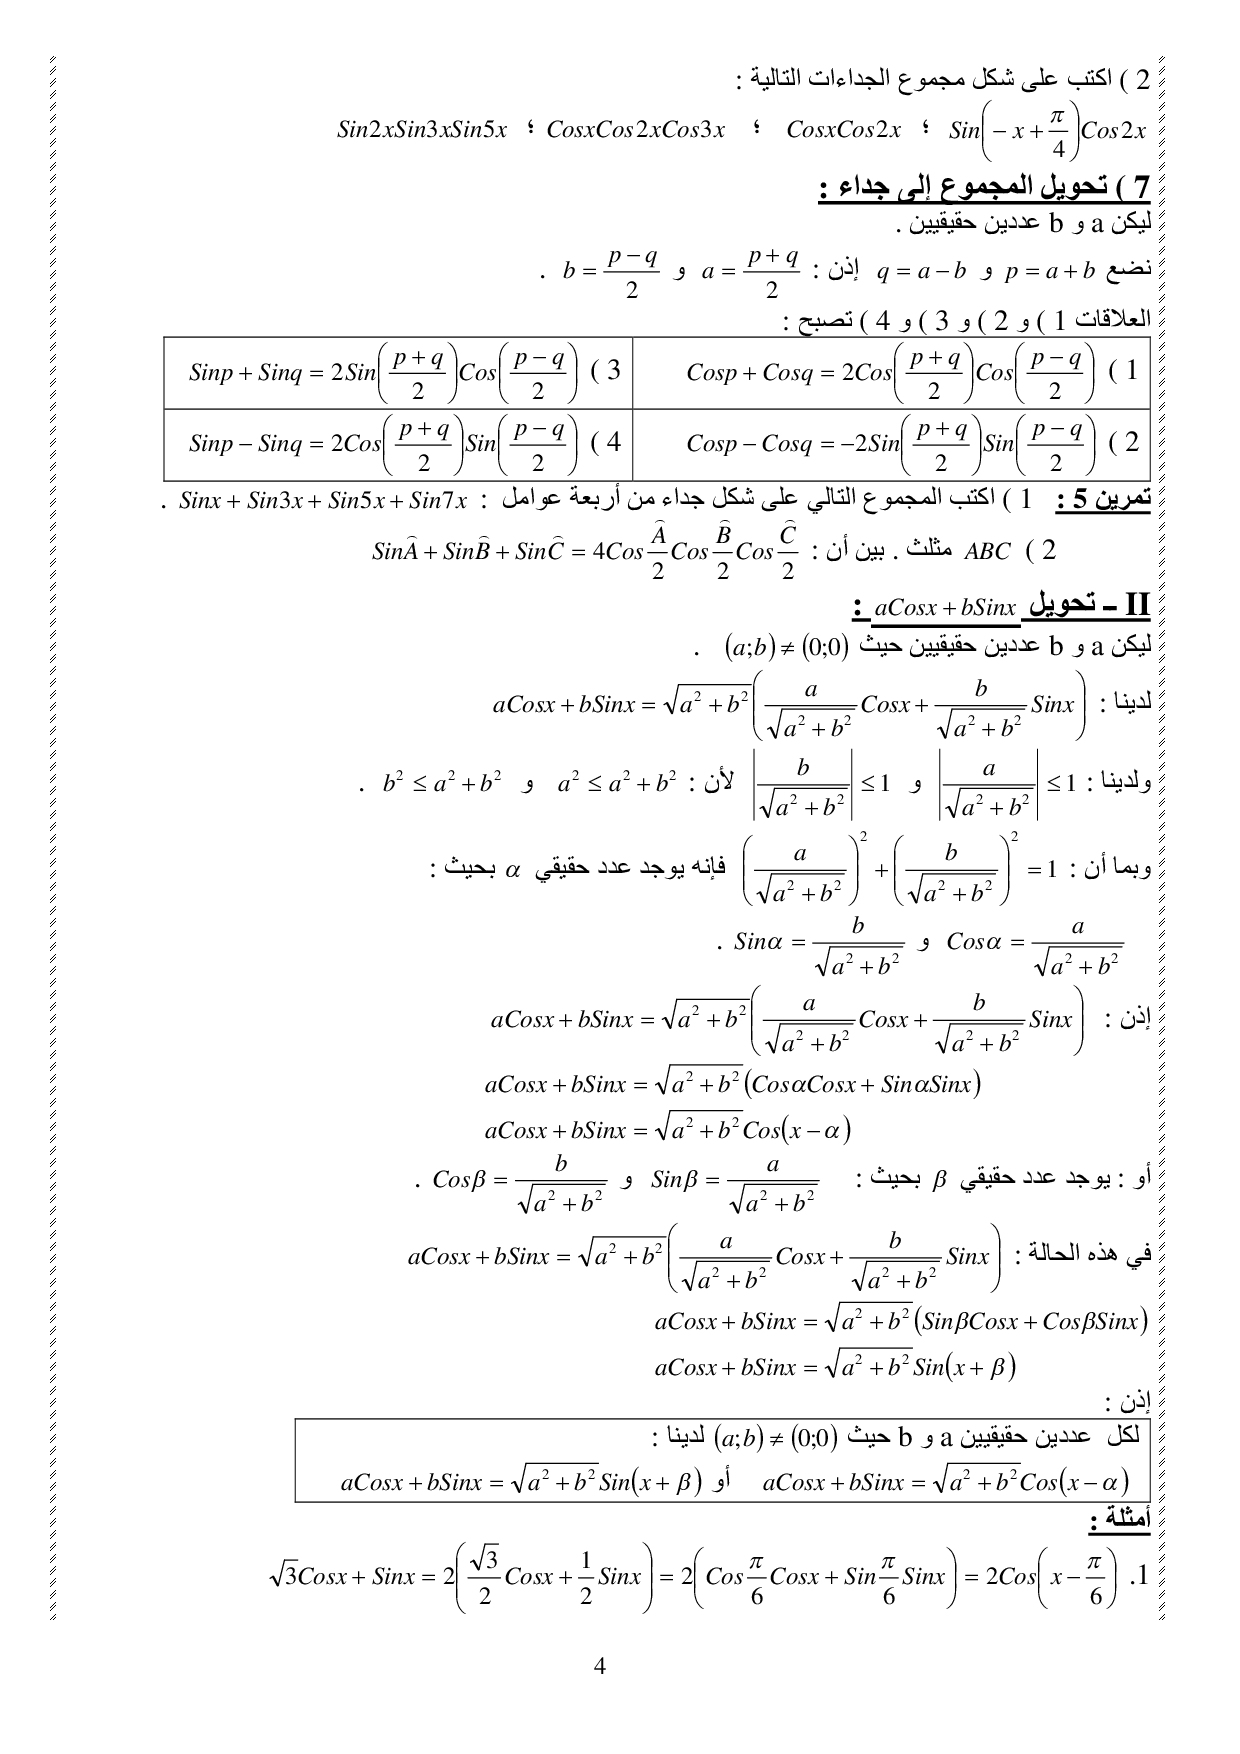 2 ) اكتب على شكل مجموع الجداءات التالية :
Sin(−x + π/4)Cos2x ؛ CosxCos2x ؛ CosxCos2xCos3x ؛ Sin2xSin3xSin5x
7 ) تحويل المجموع إلى جداء :
ليكن a و b عددين حقيقيين .
نضع p = a + b و q = a − b إذن : a = (p + q)/2 و b = (p − q)/2 .
العلاقات 1 ) و 2 ) و 3 ) و 4 ) تصبح :
1 ) Cosp + Cosq = 2Cos((p + q)/2)Cos((p − q)/2) 3 ) Sinp + Sinq = 2Sin((p + q)/2)Cos((p − q)/2)
2 ) Cosp − Cosq = −2Sin((p + q)/2)Sin((p − q)/2) 4 ) Sinp − Sinq = 2Cos((p + q)/2)Sin((p − q)/2)
تمرين 5 : 1 ) اكتب المجموع التالي على شكل جداء من أربعة عوامل : Sinx + Sin3x + Sin5x + Sin7x .
2 ) ABC مثلث . بين أن : SinÂ + SinB̂ + SinĈ = 4Cos Â/2 Cos B̂/2 Cos Ĉ/2
II – تحويل aCosx + bSinx :
ليكن a و b عددين حقيقيين حيث (a;b) ≠ (0;0) .
لدينا : aCosx + bSinx = √(a² + b²)(a/√(a² + b²) Cosx + b/√(a² + b²) Sinx)
ولدينا : |a/√(a² + b²)| ≤ 1 و |b/√(a² + b²)| ≤ 1 لأن : a² ≤ a² + b² و b² ≤ a² + b² .
وبما أن : (a/√(a² + b²))² + (b/√(a² + b²))² = 1 فإنه يوجد عدد حقيقي α بحيث :
Cosα = a/√(a² + b²) و Sinα = b/√(a² + b²) .
إذن : aCosx + bSinx = √(a² + b²)(a/√(a² + b²) Cosx + b/√(a² + b²) Sinx)
aCosx + bSinx = √(a² + b²)(CosαCosx + SinαSinx)
aCosx + bSinx = √(a² + b²)Cos(x − α)
أو : يوجد عدد حقيقي β بحيث : Sinβ = a/√(a² + b²) و Cosβ = b/√(a² + b²) .
في هذه الحالة : aCosx + bSinx = √(a² + b²)(a/√(a² + b²) Cosx + b/√(a² + b²) Sinx)
aCosx + bSinx = √(a² + b²)(SinβCosx + CosβSinx)
aCosx + bSinx = √(a² + b²)Sin(x + β)
إذن :
لكل عددين حقيقيين a و b حيث (a;b) ≠ (0;0) لدينا :
aCosx + bSinx = √(a² + b²)Cos(x − α) أو aCosx + bSinx = √(a² + b²)Sin(x + β)
أمثلة :
1. √3Cosx + Sinx = 2(√3/2 Cosx + 1/2 Sinx) = 2(Cos π/6 Cosx + Sin π/6 Sinx) = 2Cos(x − π/6)
4